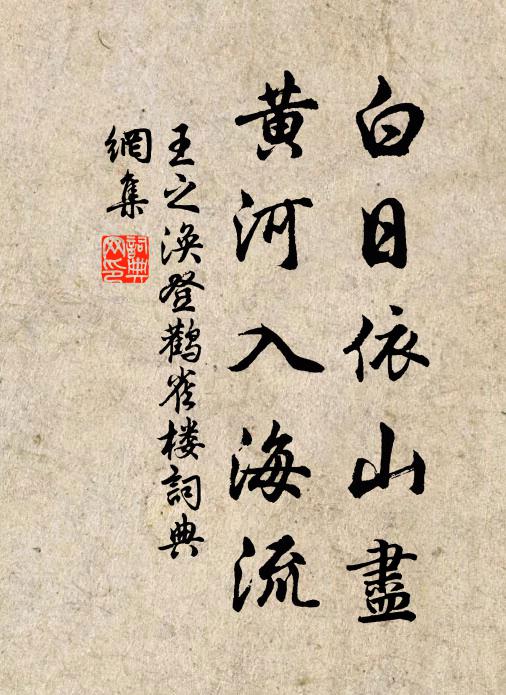 白日依山盡
黃河入海流
王之渙登鸛雀楼詞典
網集
詞典网印